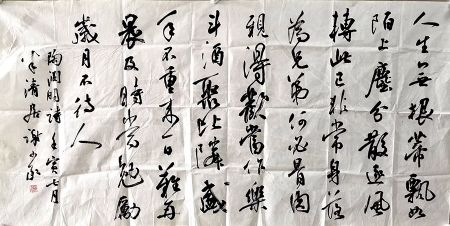 人生無根蒂飄如
陌上塵分散逐風
轉此已非常身落
為兄弟何必骨肉
親得歡當作樂
斗酒聚比隣盛
年不重来一日難再
晨及時當勉勵
歲月不待人
陶淵明詩壬寅七月
清居謝